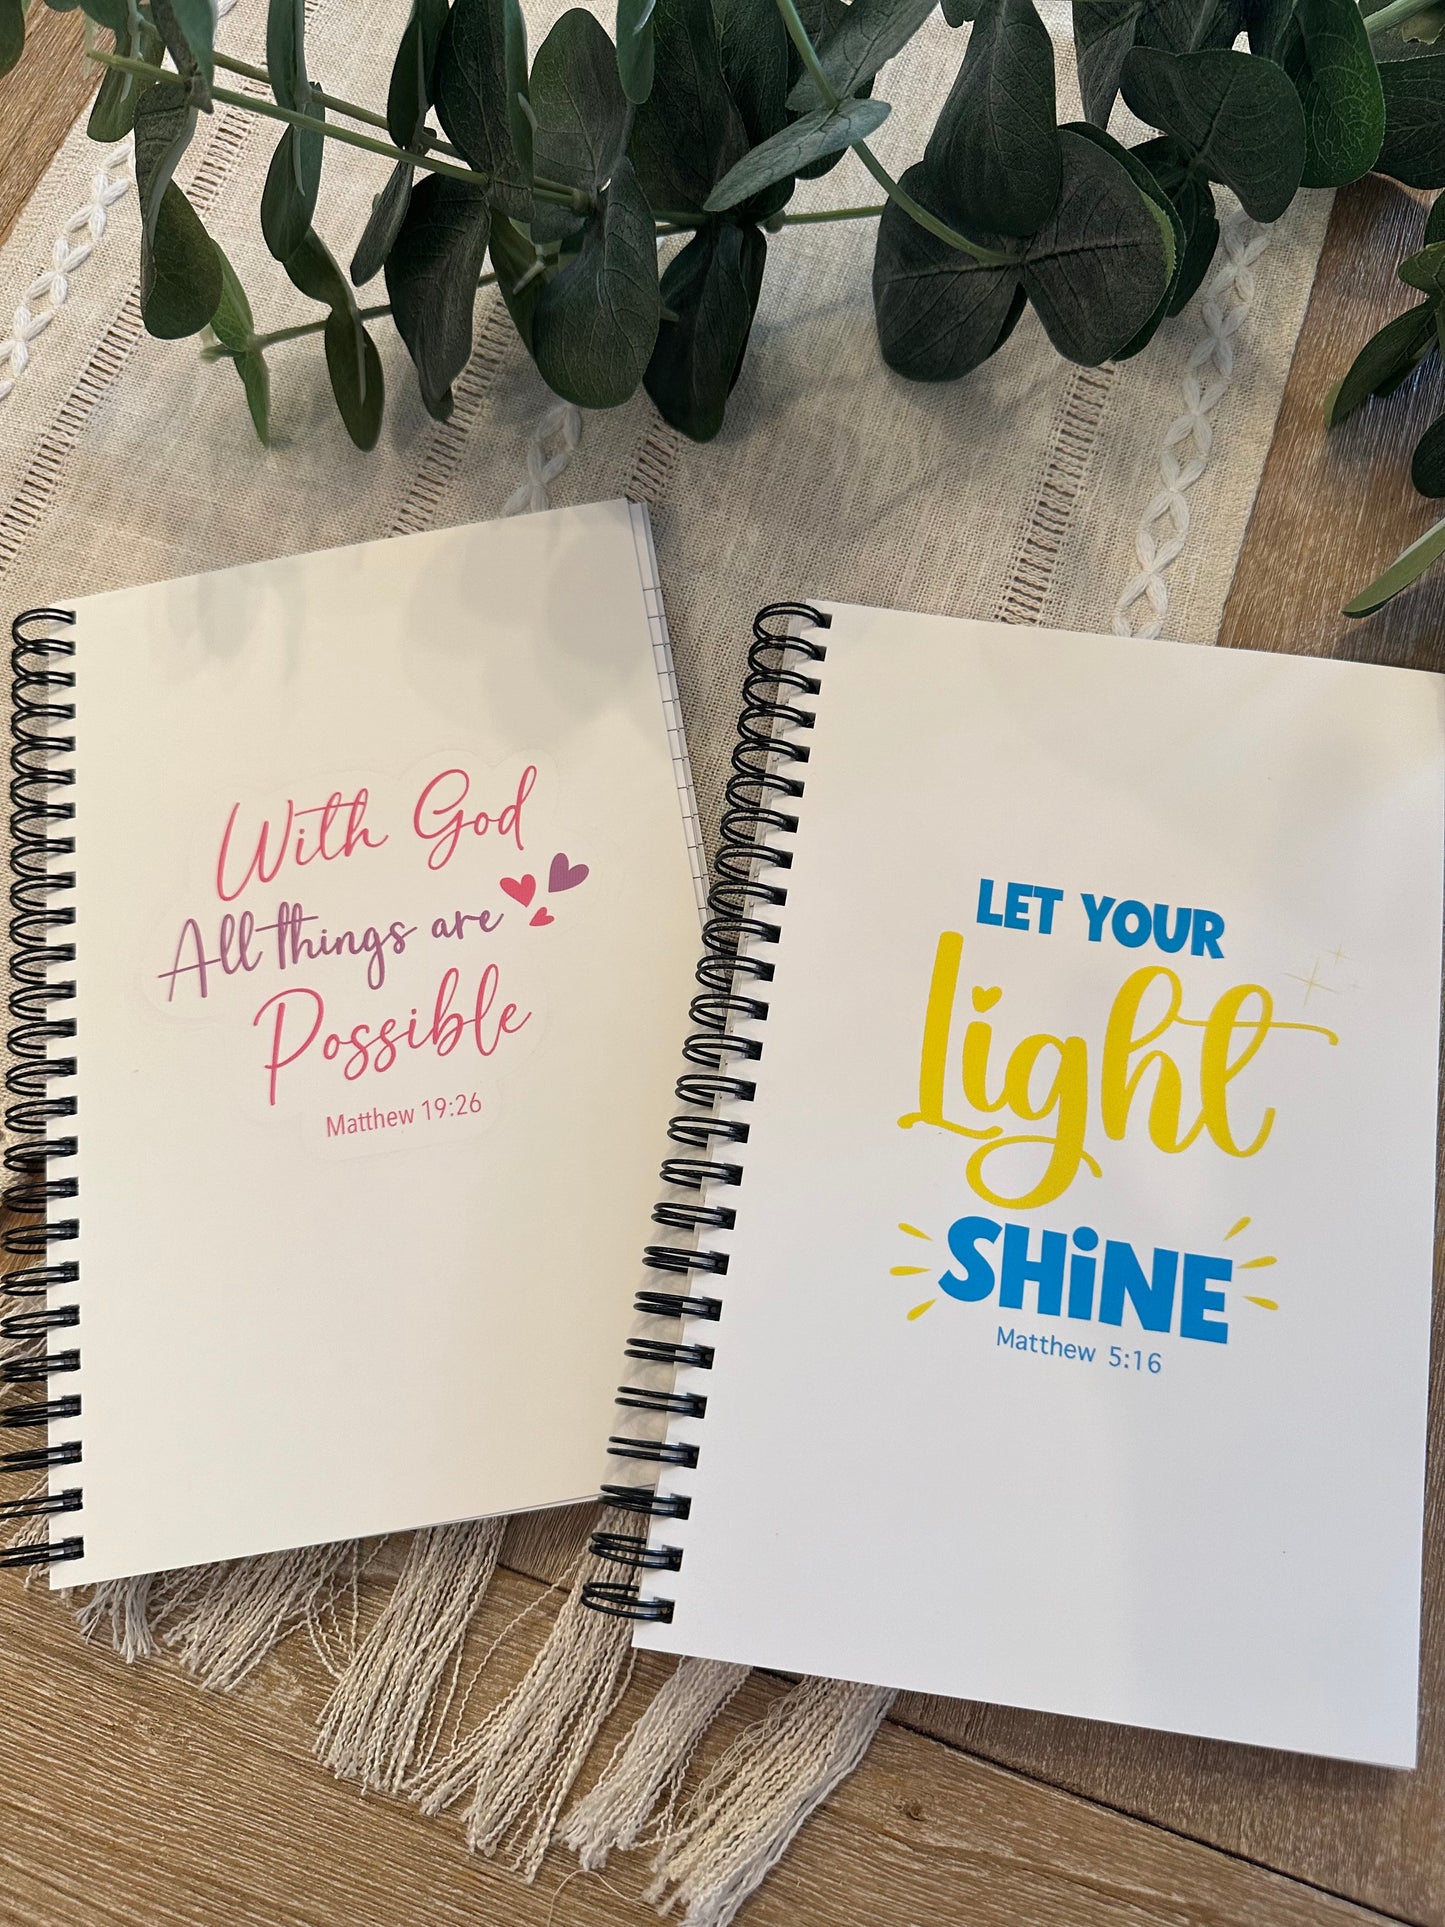 With God
All things are
Possible
Matthew 19:26
LET YOUR
Light
SHiNE
Matthew 5:16